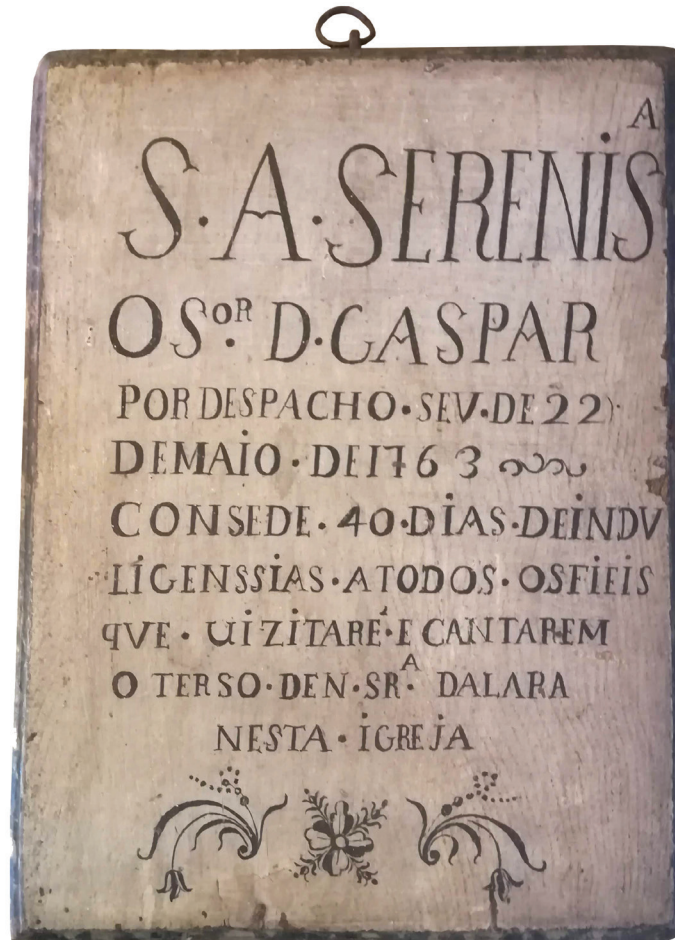 S·A·SERENISA
O SOR· D·GASPAR
POR DESPACHO·SEV·DE 22
DEMAIO·DE1763
CONSEDE·40·DIAS·DEINDV
LIGENSSIAS·ATODOS·OSFIEIS
qVE·UIZITARE·E CANTAREM
O TERSO·DEN·SRA· DALARA
NESTA·IGREJA